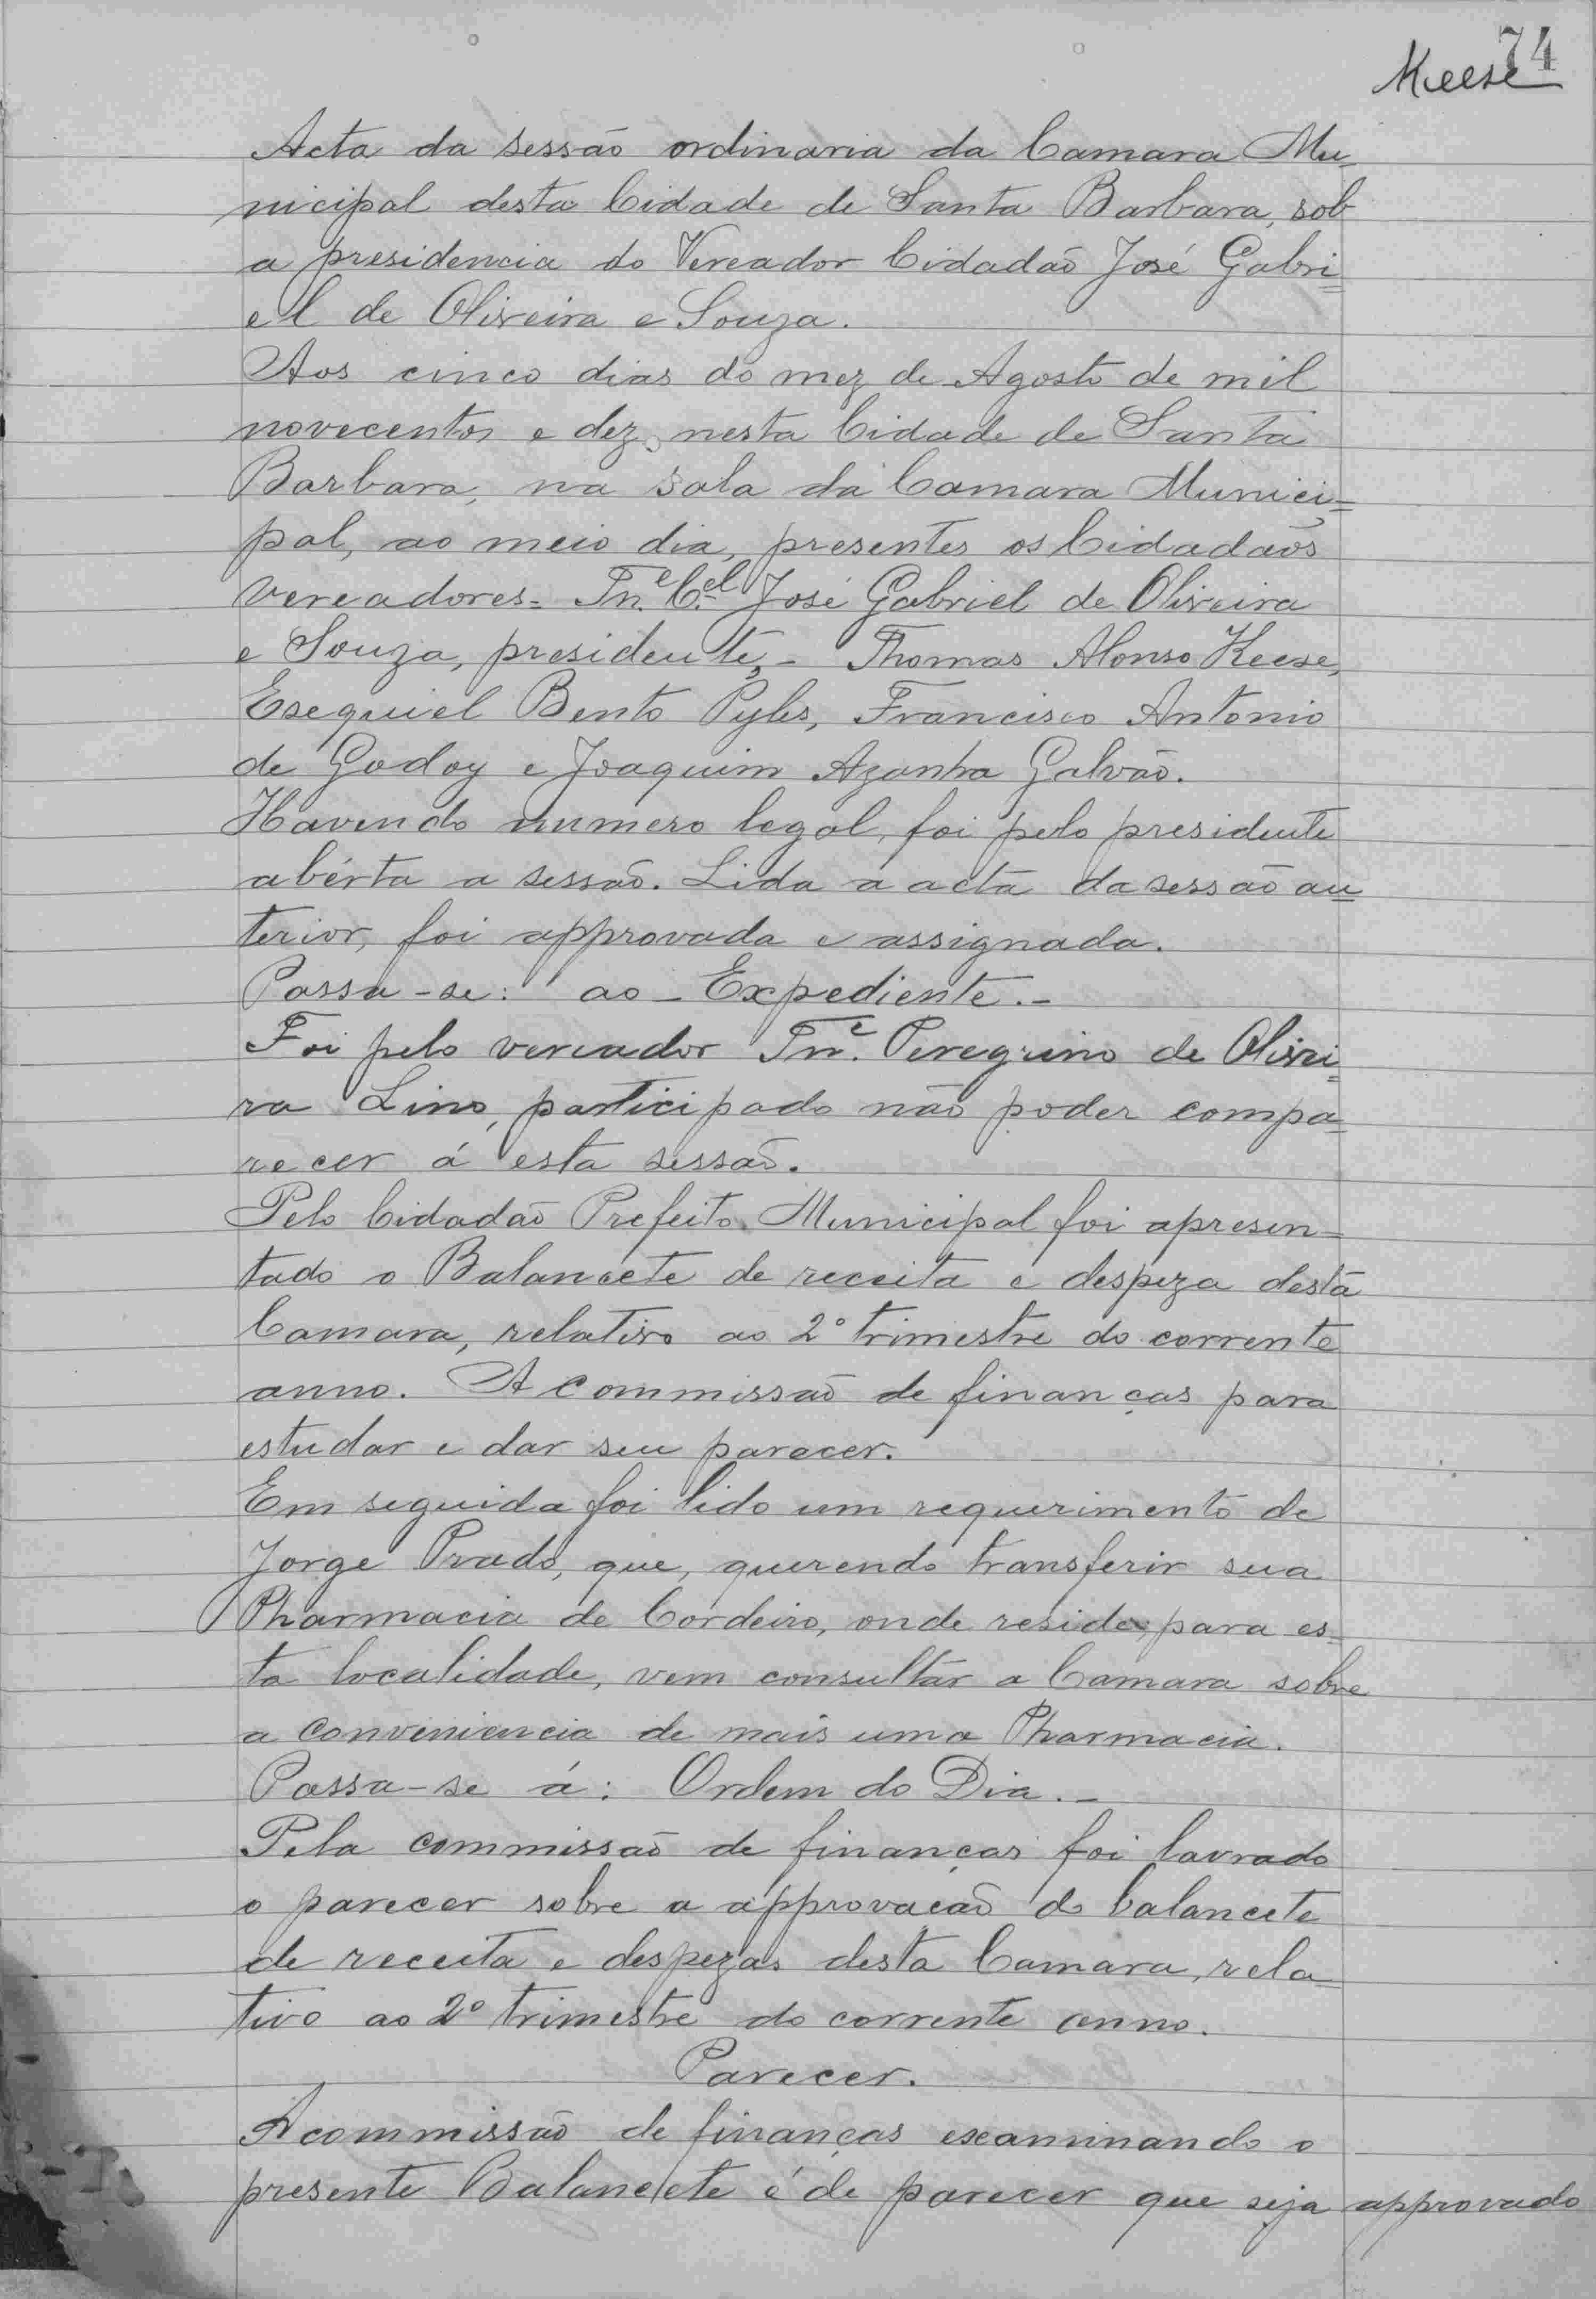 74
Keese
Acta da sessão ordinaria da Camara Mu-
nicipal desta Cidade de Santa Barbara, sob
a presidencia do Vereador Cidadão José Gabri=
el de Oliveira e Souza.
Aos cinco dias do mez de Agosto de mil
novecentos e dez, nesta Cidade de Santa
Barbara, na sala da Camara Munici=
pal, ao meio dia, presentes os Cidadãos
vereadores= Tn.e C.el José Gabriel de Oliveira
e Souza, presidente, - Thomas Alonso Keese,
Esequiel Bento Pyles, Francisco Antonio
de Godoy e Joaquim Azanha Galvão.
Havendo numero legal, foi pelo presidente
abérta a sessão. Lida a acta da sessão an=
terior, foi approvada e assignada.
Passa-se: ao - Expediente.-
Foi pelo vereador Tn.e Peregrino de Olivei=
ra Lino, participado não poder compa=
recer á esta sessão.
Pelo Cidadão Prefeito Municipal foi apresen-
tado o Balancete de receita e despeza desta
Camara, relativo ao 2º trimestre do corrente
anno. A commissão de finanças para
estudar e dar seu parecer.
Em seguida foi lido um requerimento de
Jorge Prado, que, querendo transferir sua
Pharmacia de Cordeiro, onde reside, para es-
ta localidade, vem consultar a Camara sobre
a conveniencia de mais uma Pharmacia.
Passa-se á: Ordem do Dia.-
Pela commissão de finanças foi lavrado
o parecer sobre a approvação do balancete
de receita e despezas desta Camara, rela
tivo ao 2º trimestre do corrente anno.
Parecer.
A commissão de finanças examinando o
presente Balancete é de parecer que seja approvado